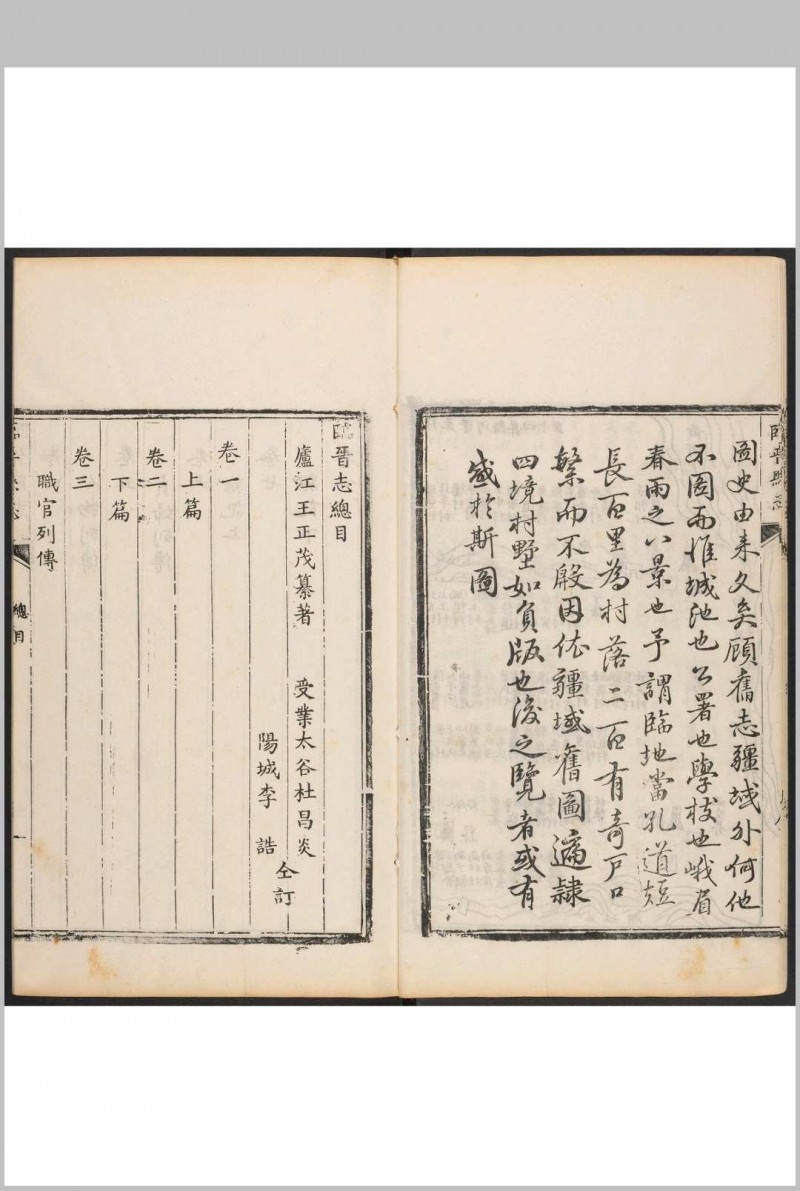 圖史由来久矣顧舊志疆域外何他
不圖而惟城池也公署也學校也峨眉
春雨之八景也予謂臨地當孔道短
長百里為村落二百有奇戶口
繁而不殷因依疆域舊圖遍隷
四境村墅如負版也後之覽者或有
感於斯圖
臨晉志總目
廬江王正茂纂著 受業太谷杜昌炎
陽城李 誥
仝訂
卷一
上篇
卷二
下篇
卷三
職官列傳
總目
一